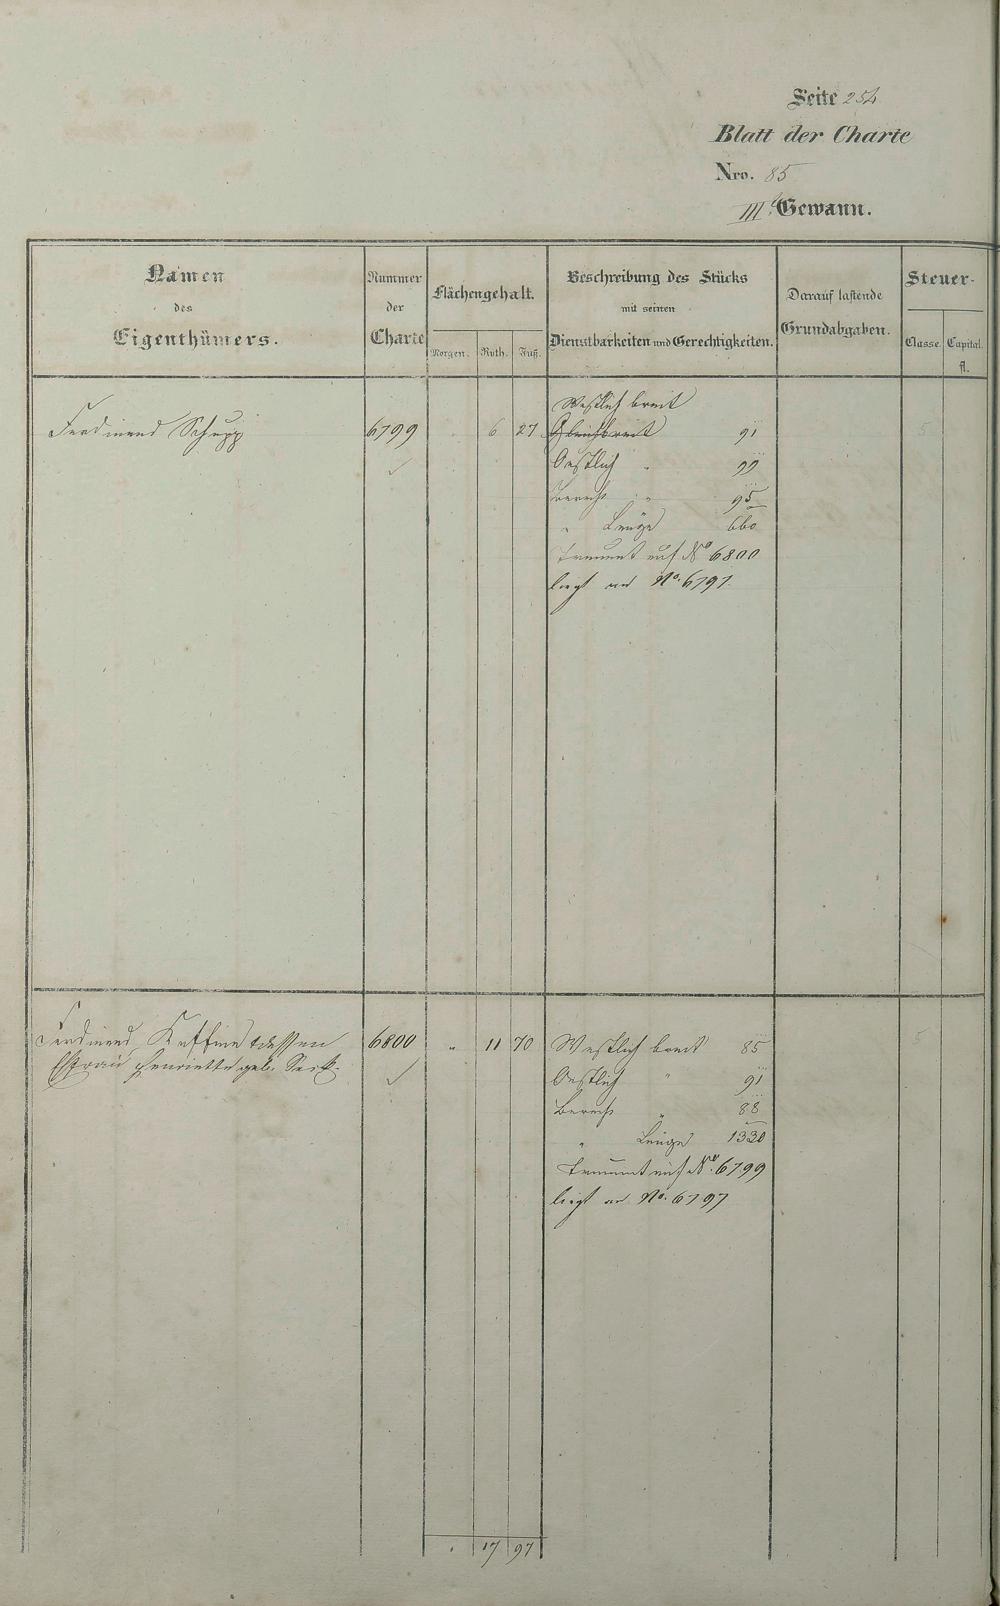 Seite 254
Blatt der Charte
Nro. 85
III. Gewann.
Namen des Eigenthümers.
Nummer der Charte
Flächengehalt.
Morgen. Ruth. Fuß.
Beschreibung des Stücks mit seinen Dienstbarkeiten und Gerechtigkeiten.
Darauf lastende Grundabgaben.
Steuer-
Classe. Capital. fl.
Westlich breit
Ferdinand Schupp 6799 6 27 Gleichbreit 91
Oestlich " 99
Berecht " 95
" Länge 660
Trennt auf No 6800
liegt an No. 6797.
5
Ferdinand dessen 6800 " 11 70 Westlich breit 85
Ehefrau Henriette geb.
Oestlich " 91
Berecht " 88
" Länge 1330
Trennt auf No. 6799
liegt an No. 6797
5
. 17 97